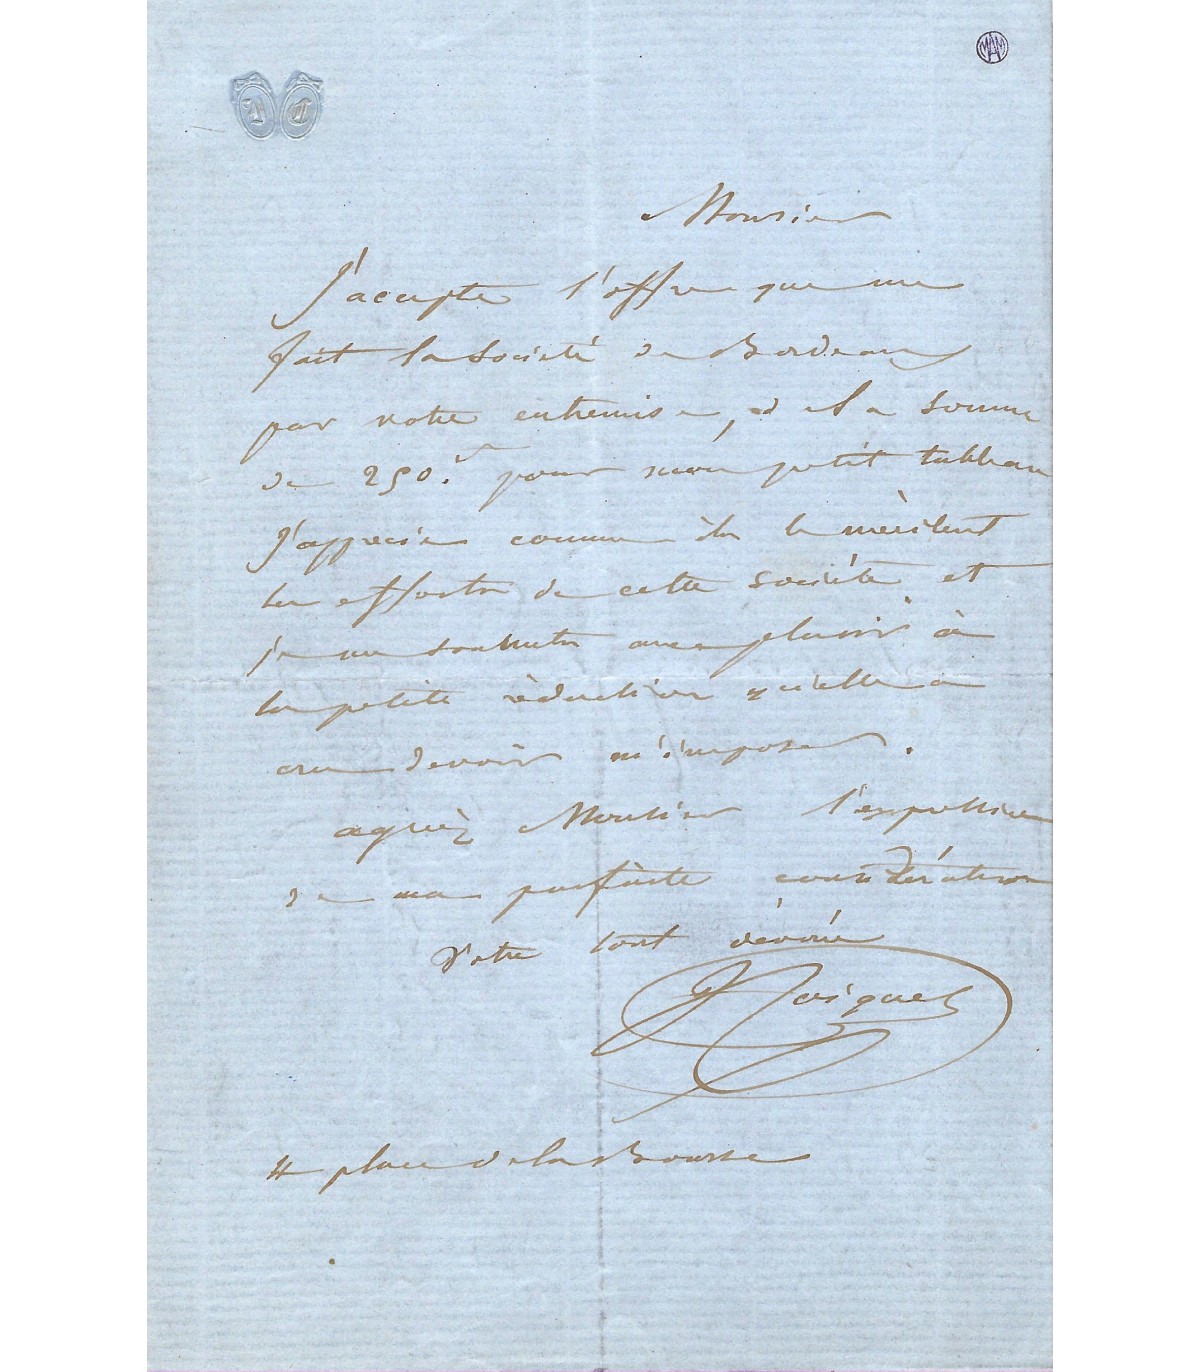 MAM
Monsieur
J'accepte l'offre que me
fait la Société de Bordeaux
par votre entremise, de la somme
de 250.f pour mon petit tableau
J'apprecie comme ils le mèritent
les efforts de cette Société et
je me soumets avec plaisir à
la petite rèduction qu'elle a
cru devoir m'imposer.
agréèz Monsieur l'expression
de ma parfaite considération
Votre tout dévoué
place de la Bourse